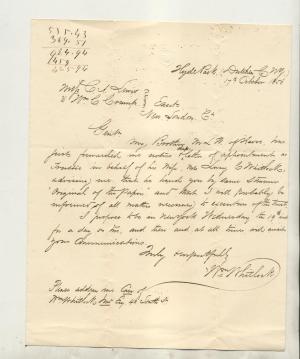 535.43
Hyde Park (Dutchess C NY)
17th October 1856
Messrs C A Lewis
& Wm C Crump } Exect.
New London Ct
Gent.
My Brother
just forwarded me notice & letter of appointment as
Trustee in behalf of his Wife Mrs Lucy C Whitlock
advising me that he hands you by same Steamer
"Original of the Paper" and that I will probably be
informed of all matters necessary to execution of the trust
I propose to be in New York Wednesday the 19 inst
for a day or two, and then and at all times will await
your Communications
Truly & respectfully
Wm Whitlock
Please address me Care of
Wm Whitlock Jr Esq 46 South St